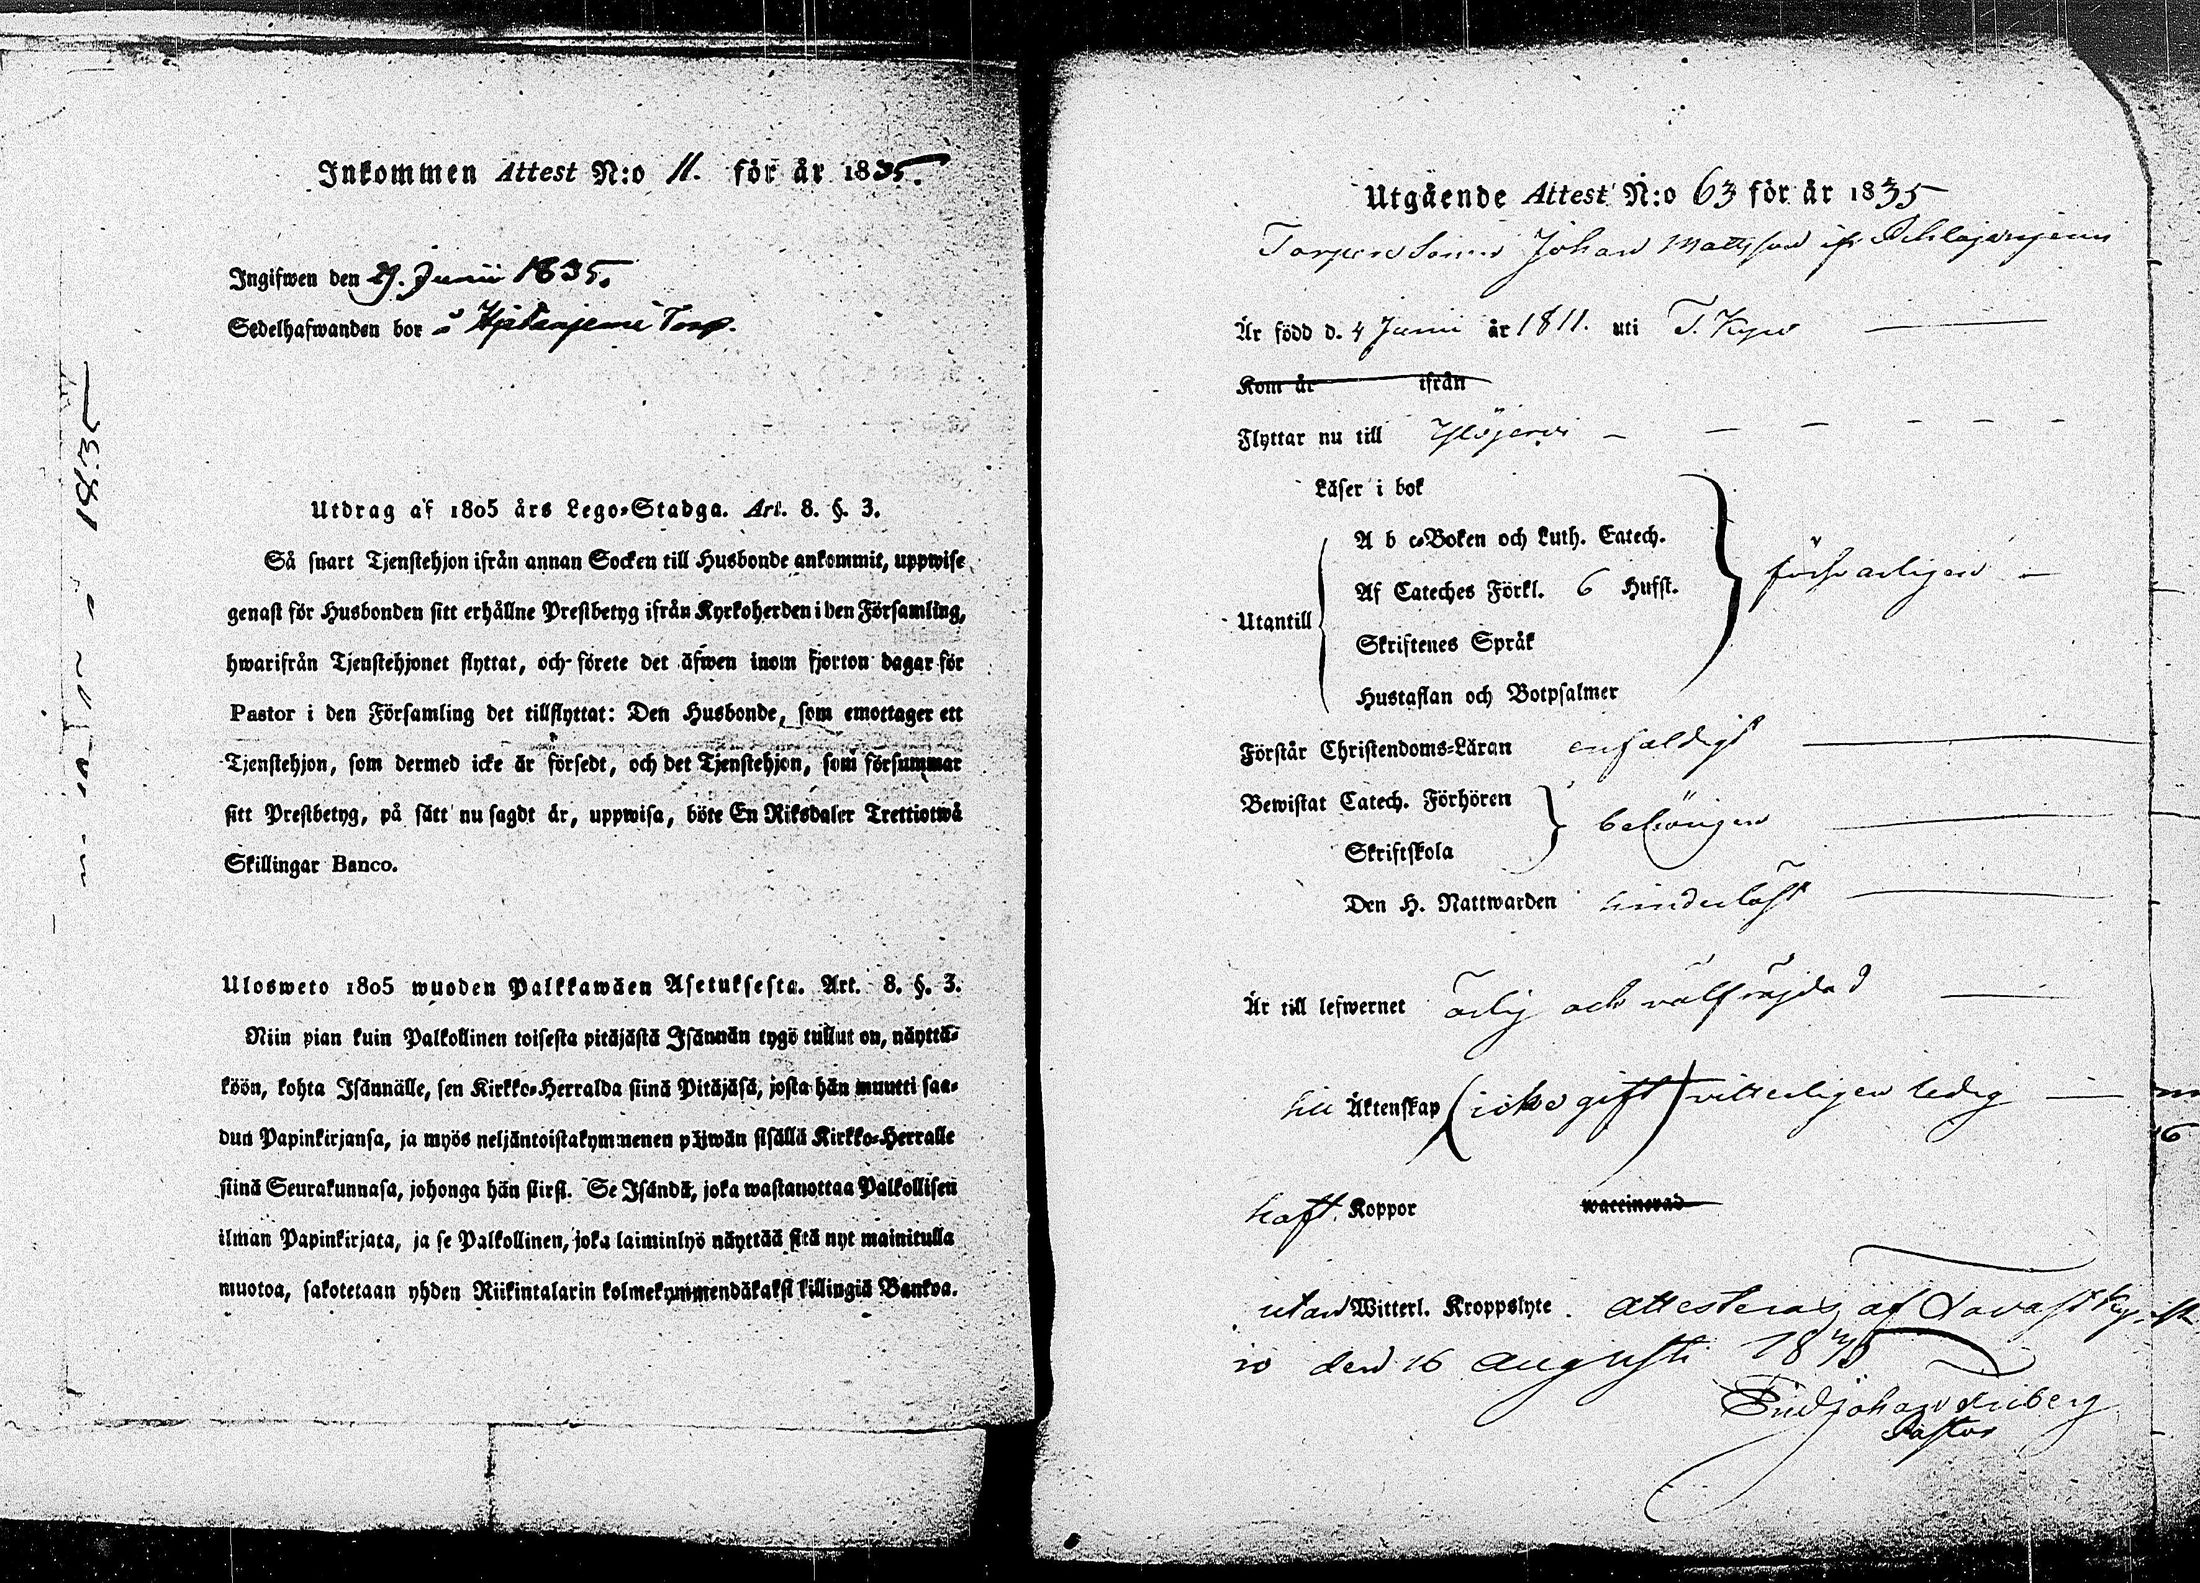 Inkommen Attest N:o 11. för år 1835.
Ingifwen den 29. Junii 1835.
Sedelhafwanden bor å Torp.
1835
Utdrag af 1805 års Lego-Stadga. Art. 8. §. 3.
Så snart Tjenstehjon ifrån annan Socken till Husbonde ankommit, uppwise
genast för Husbonden sitt erhållne Prestbetyg ifrån Kyrkoherden i den Församling,
hwarifrån Tjenstehjonet flyttat, och förete det äfwen inom fjorton dagar för
Pastor i den Församling det tillflyttat: Den Husbonde, som emottager ett
Tjenstehjon, som dermed icke är försedt, och det Tjenstehjon, som försummar
sitt Prestbetyg, på sätt nu sagdt är, uppwisa, böte En Riksdaler Trettiotwå
Skillingar Banco.
Ulosweto 1805 wuoden Palkkawäen Asetuksesta. Art. 8. §. 3.
Niin pian kuin Palkollinen toisesta pitäjästä Isännän tygö tullut on, näyttä-
köön, kohta Isännälle, sen Kirkko-Herralda siinä Pitäjäsä, josta hän muutti saa-
dun Papinkirjansa, ja myös neljäntoistakymmenen päiwän sisällä Kirkko-Herralle
siinä Seurakunnasa, johonga hän siirsi. Se Isändä, joka wastanottaa Palkollisen
ilman Papinkirjata, ja se Palkollinen, joka laiminlyö näyttää sitä nyt mainitulla
muotoa, sakotetaan yhden Riikintalarin kolmekymmendäkaksi killingiä Bankoa.
Utgående Attest N:o 63 för år 1835
Johan Mattsson ifr.
Är född d. 4 Junii år 1811. uti T. Kyro
Kom år ifrån
Flyttar nu till Ylöjervi
Läser i bok
A b c-Boken och Luth. Catech.
Af Cateches Förkl. 6 Hufst.
försvarligen
Utantill
Skriftenes Språk
Hustaflan och Botpsalmer
Förstår Christendoms-Läran enfaldigt
Bewistat Catech. Förhören
behörigen
Skriftskola
Den H. Nattwarden hinderlöst
Är till lefwernet ärlig och välfräjdad
till Äktenskap (icke gift) vitterligen ledig
haft Koppor waccinerad
utan Witterl. Kroppslyte. attesteras af Tavastky-
ro den 16 Augusti 1835
Pastor